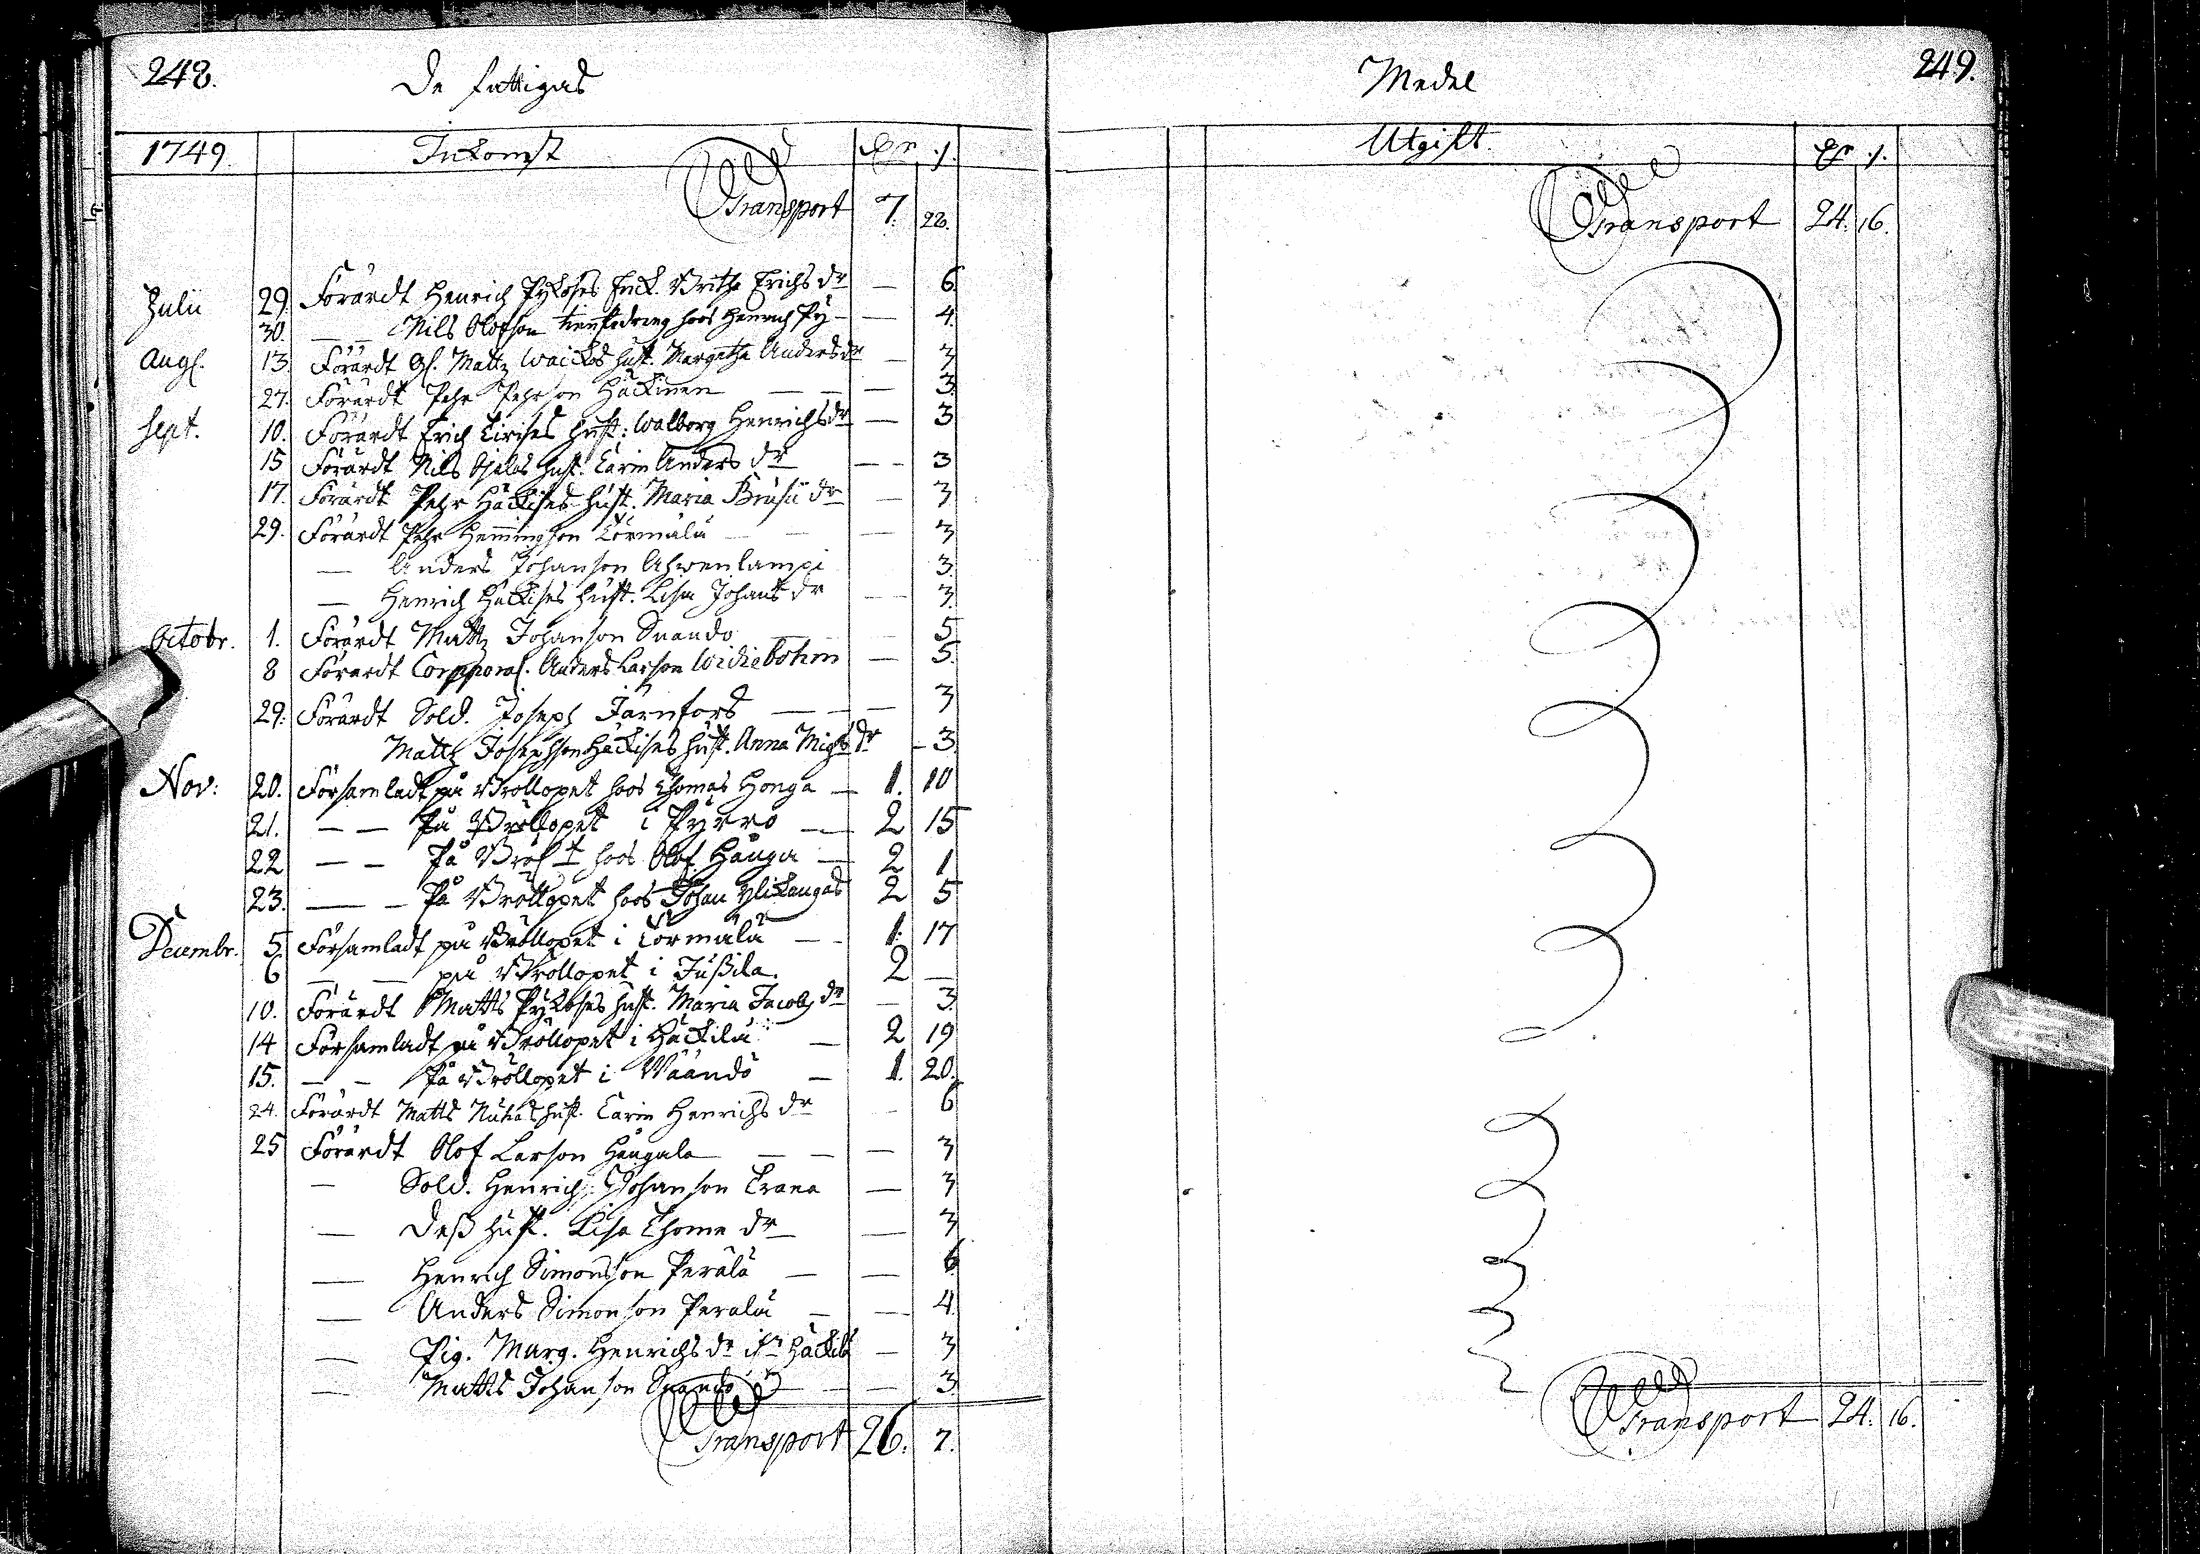 248.
De fattigas
1749.
Inkomst
Transport 7. 22.
Julii 29. Förärdt Henrich Pykoses Enck. Britha Erichs dr — 6
30. — — Nils Olofson hoos Henrich Py — — 4.
Aug. 13. Förärdt Gl. Mattz Waickos hust. Margetha Anders dr — 3
27. Förärdt Pehr Pehrson Häckinen — — — 3.
Sept. 10. Förärdt Erich hust: Walborg Henrichs dr — 3
15 Förärdt Nils hust. Carin Anders dr — — 3
17. Förärdt Pehr Häckises hust. Maria Brusii dr — 3
29. Förärdt Pehr Hemmingson Törmälä — — — 3
— Anders Johanson Ahwenlampi 3.
— Henrich Häckises hust. Lisa Johans dr — 3.
Octobr. 1. Förärdt Mattz Johanson Snando 5
8 Förärdt Corpporal. Anders Larson Widiebohm — 5.
29. Förärdt Sold. Joseph Järnfors — — — 3
Mattz Josephson Häckises hust. Anna Michs dr — 3.
Nov: 20. Församladt på Bröllopet hoos Thomas Honga — 1. 10
21. — — På Bröllopet i Pyrrö — 2 15
22 — — På Bröl:t hoos Olof Hånga — 2 1
23. — — På Bröllopet hoos Johan Ylikangas 2 5
Decembr. 5. Församladt på Bröllopet i Törmälä — — 1. 17
6 — — på Bröllopet i Jußila. 2 —
10. Förärdt Matts Pykoses hust. Maria Jacobs dr — 3.
14 Församladt på Bröllopet i Häckilä — 2 19
15. — — På Bröllopet i Wäändö — 1. 20.
24. Förärdt Matts hust. Carin Henrichs dr — 6
25 Förärdt Olof Larson Hångala — — — 3
— Sold. Henrich Johanson Trana — 3
— Deß hust. Lisa Thome dr — — 3
— Henrich Simonsson Perälä — — 6
— Anders Simonson Perälä — — 4.
— Pig. Marg. Henrichs dr Häckilä — 3
— Matts Johanson Snando — — 3.
Transport 26. 7.
Medel
249.
Utgift.
Transport 24. 16.
Transport 24. 16.